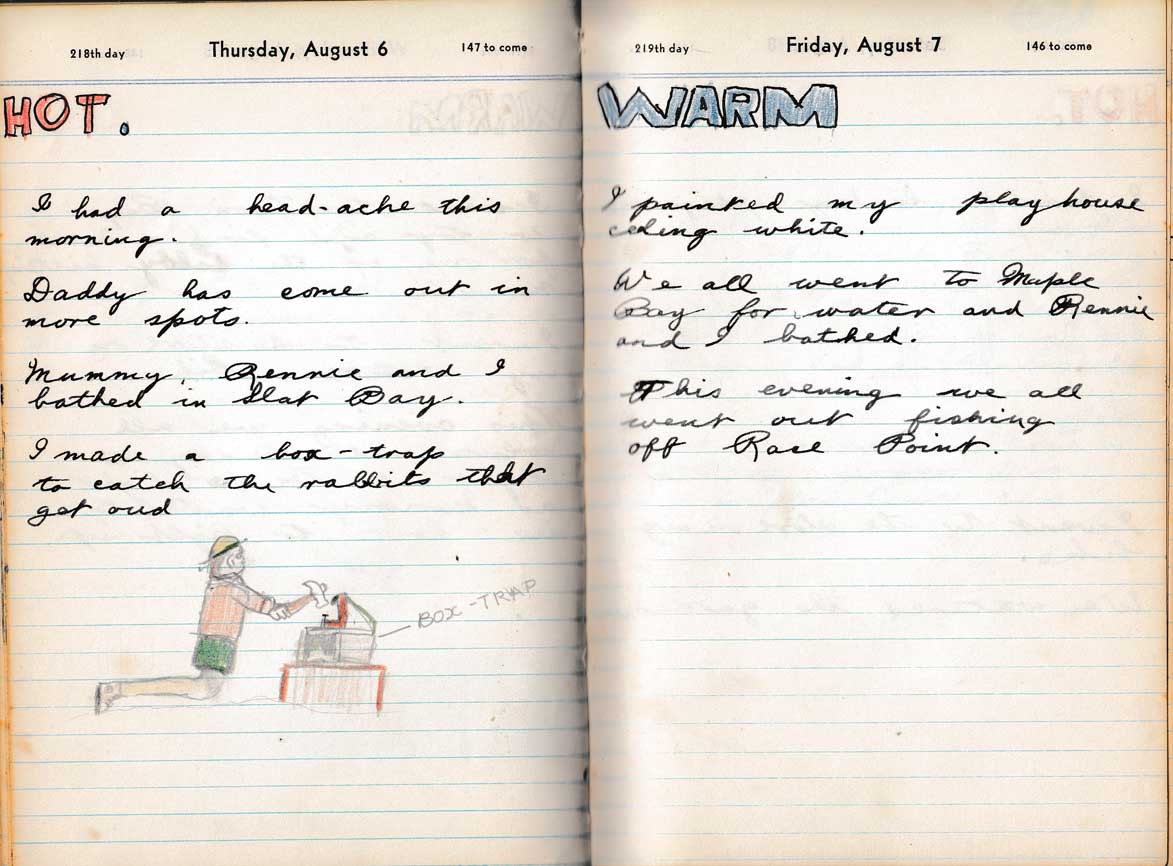 218th day Thursday, August 6 147 to come
HOT.
I had a head-ache this
morning.
Daddy has come out in
more spots.
Mummy, Rennie and I
bathed in Slat Bay.
I made a box-trap
to catch the rabbits that
get oud
BOX-TRAP
219th day Friday, August 7 146 to come
WARM
I painted my playhouse
celing white.
We all went to Maple
Bay for water and Rennie
and I bathed.
This evening we all
went out fishing
off Race Point.